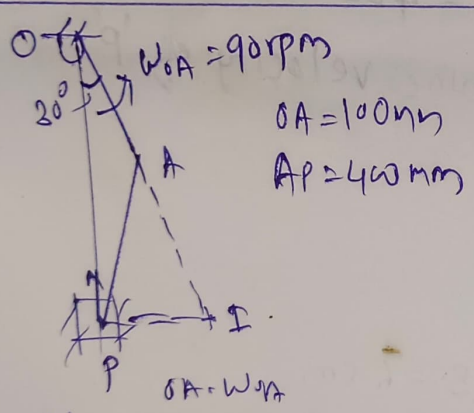 O
W₀A = 90rpm
30°
OA = 100mm
A
AP = 400mm
I.
P
OA. W₀A